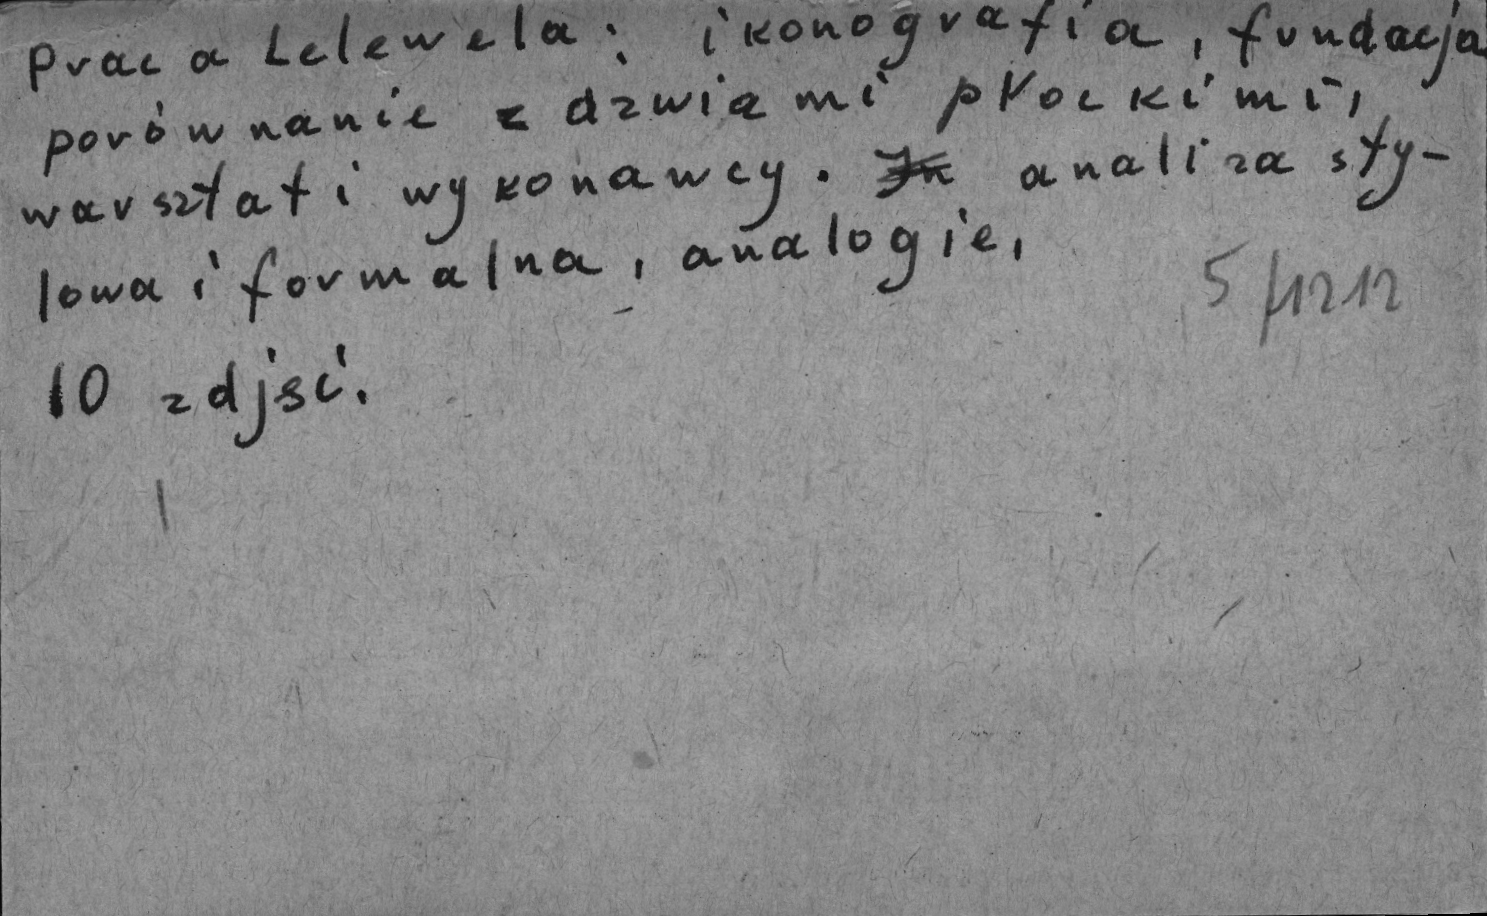 Praca Lelewela: ikonografia, fundacja
porównanie z dżwiąmi płockimi,
warsztat i wykonawcy. analiza sty-
lowa i formalna, analogie,
10 zdjęć.